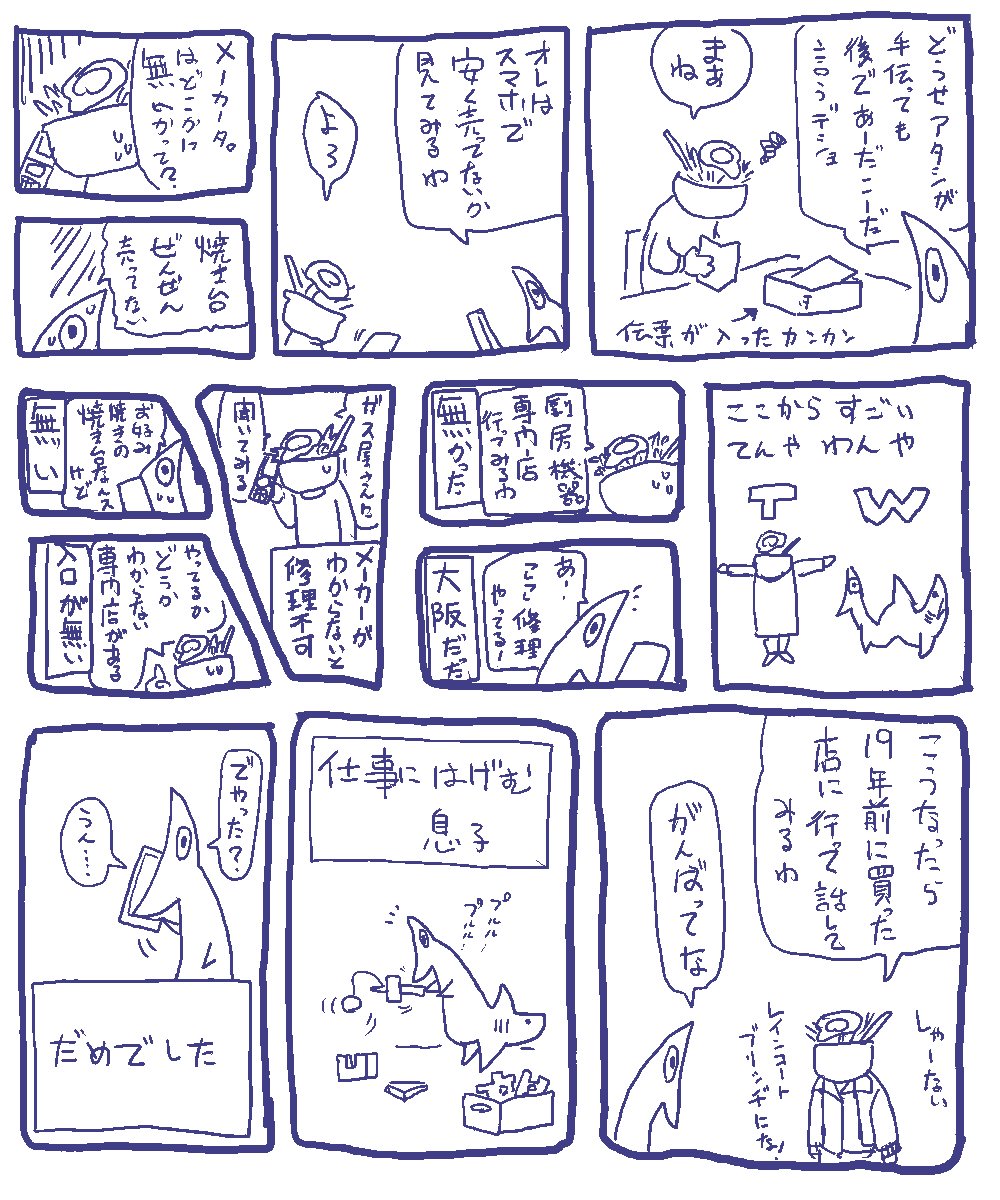 どうせアタシが
手伝っても
後であーだこーだ
言うデショ
まぁ
ね
伝票が入ったカンカン
オレは
スマホで
安く売ってないか
見てみるわ
よろ
メーカーは
どこかに
無いかって?
焼き台
ぜんぜん
売ってない
ここからすごい
てんやわんや
T
W
厨房機器
専門店
行ってみるわ
無かった
あ!
ここ修理
やってる!
大阪だだ
ガス屋さんに
聞いてみる
メーカーが
わからないと
修理不可
お好み
焼きの
焼き台なんス
けど
無い
やってるか
どうか
わからない
専門店がある
入口が無い
こうなったら
19年前に買った
店に行って話して
みるわ
がんばってな
しゃーない
レインコート
ブリンヂにな!
仕事にはげむ
息子
プルル!
プルル!
でやった?
うん…
だめでした